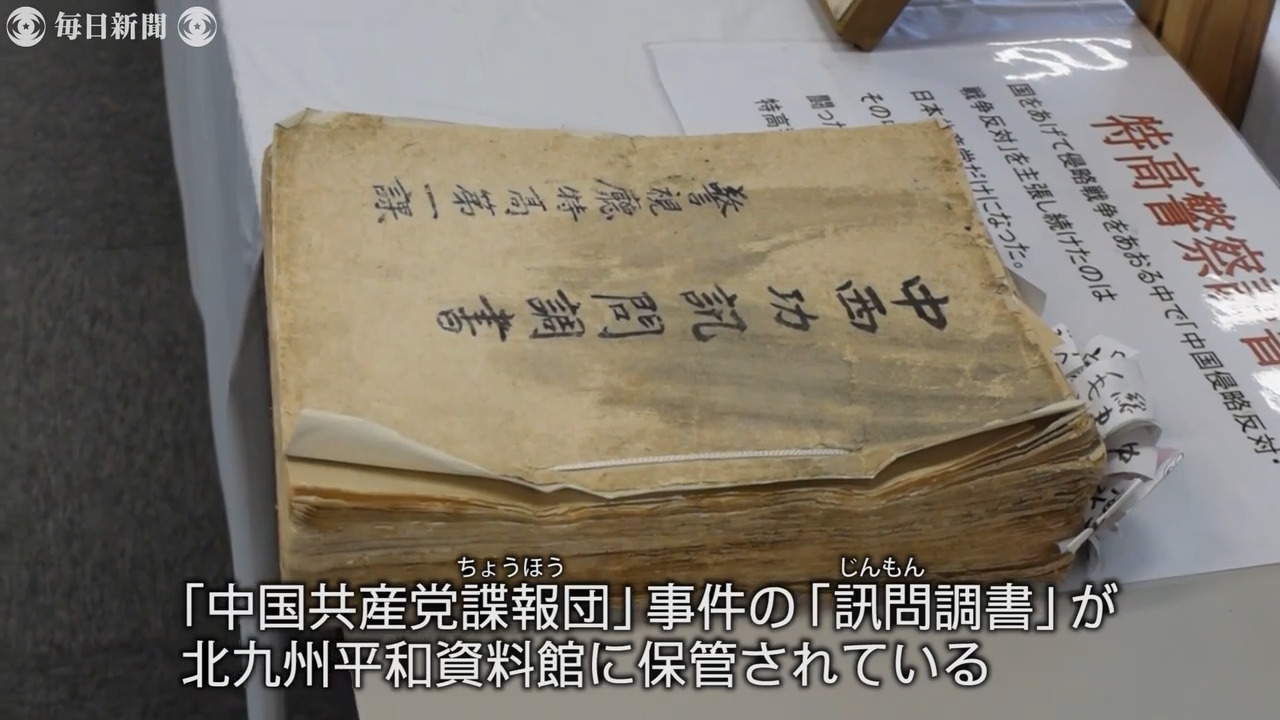 毎日新聞
特高警察
国をあげて侵略戦争をあおる中で「中国侵略反対、
戦争反対」を主張し続けたのは
だけになった。
その
闘った
特高
警視廳特高第一課
中西功訊問調書
ちょうほう じんもん
「中国共産党諜報団」事件の「訊問調書」が
北九州平和資料館に保管されている